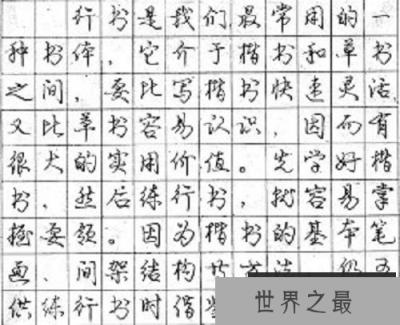 行书是我们最常用的一
种书体，它介于楷书和草书
之间，要比写楷书快速灵活，
又比草书容易认识，因而有
很大的实用价值。先学好楷
书，然后练行书，就容易掌
握要领。因为楷书的基本笔
画、间架结构
供练行书时借鉴
世界之最